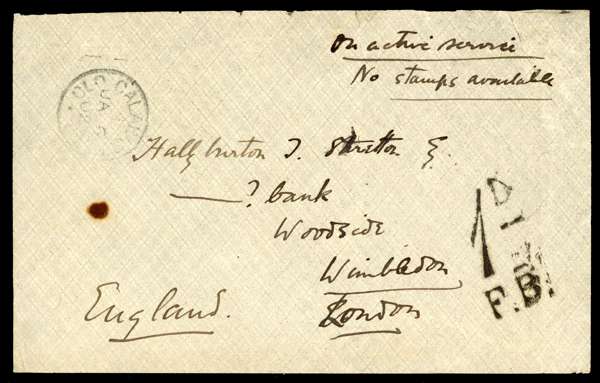 On active service
No stamps available
OLD CALAB
JA
02
Hallyburton J. Stretton E
? bank
Woodside
Wimbledon
London
England.
1D
F.B.